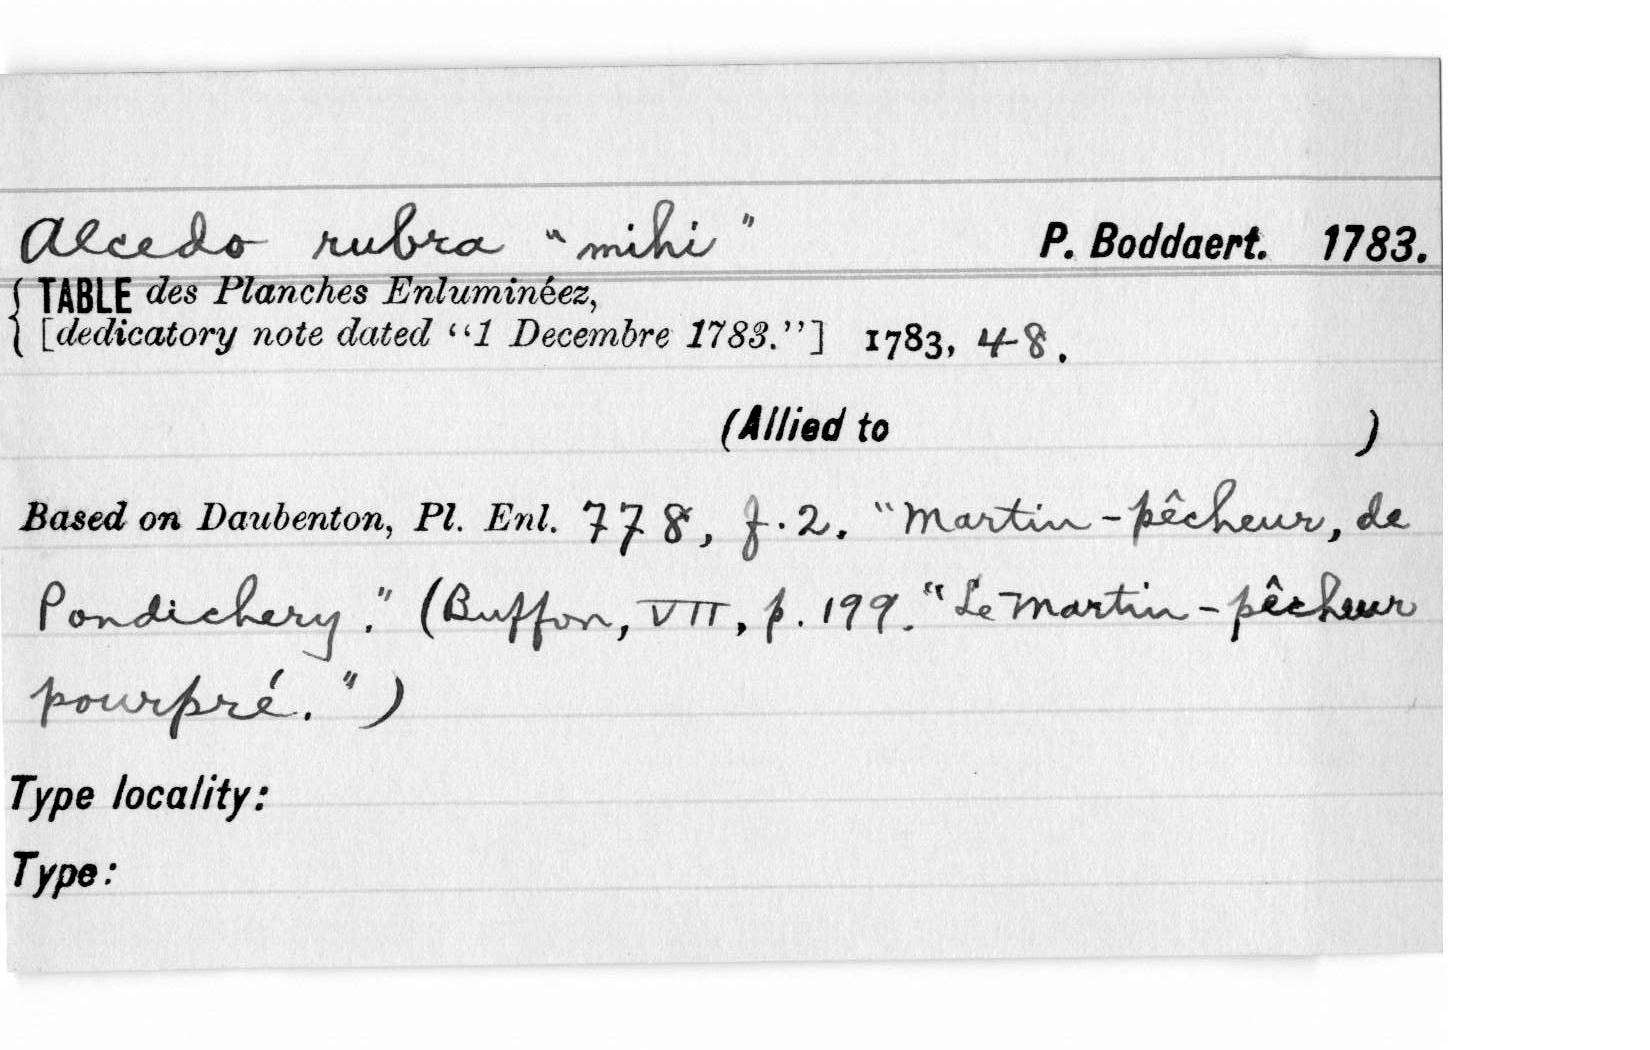 Alcedo rubra "mihi" P. Boddaert. 1783.
{ TABLE des Planches Enluminéez,
{ [dedicatory note dated "1 Decembre 1783."] 1783, 48.
(Allied to )
Based on Daubenton, Pl. Enl. 778, f. 2. "Martin-pêcheur, de
Pondichery." (Buffon, VII, p. 199. "Le Martin-pêcheur
pourpré.")
Type locality:
Type: